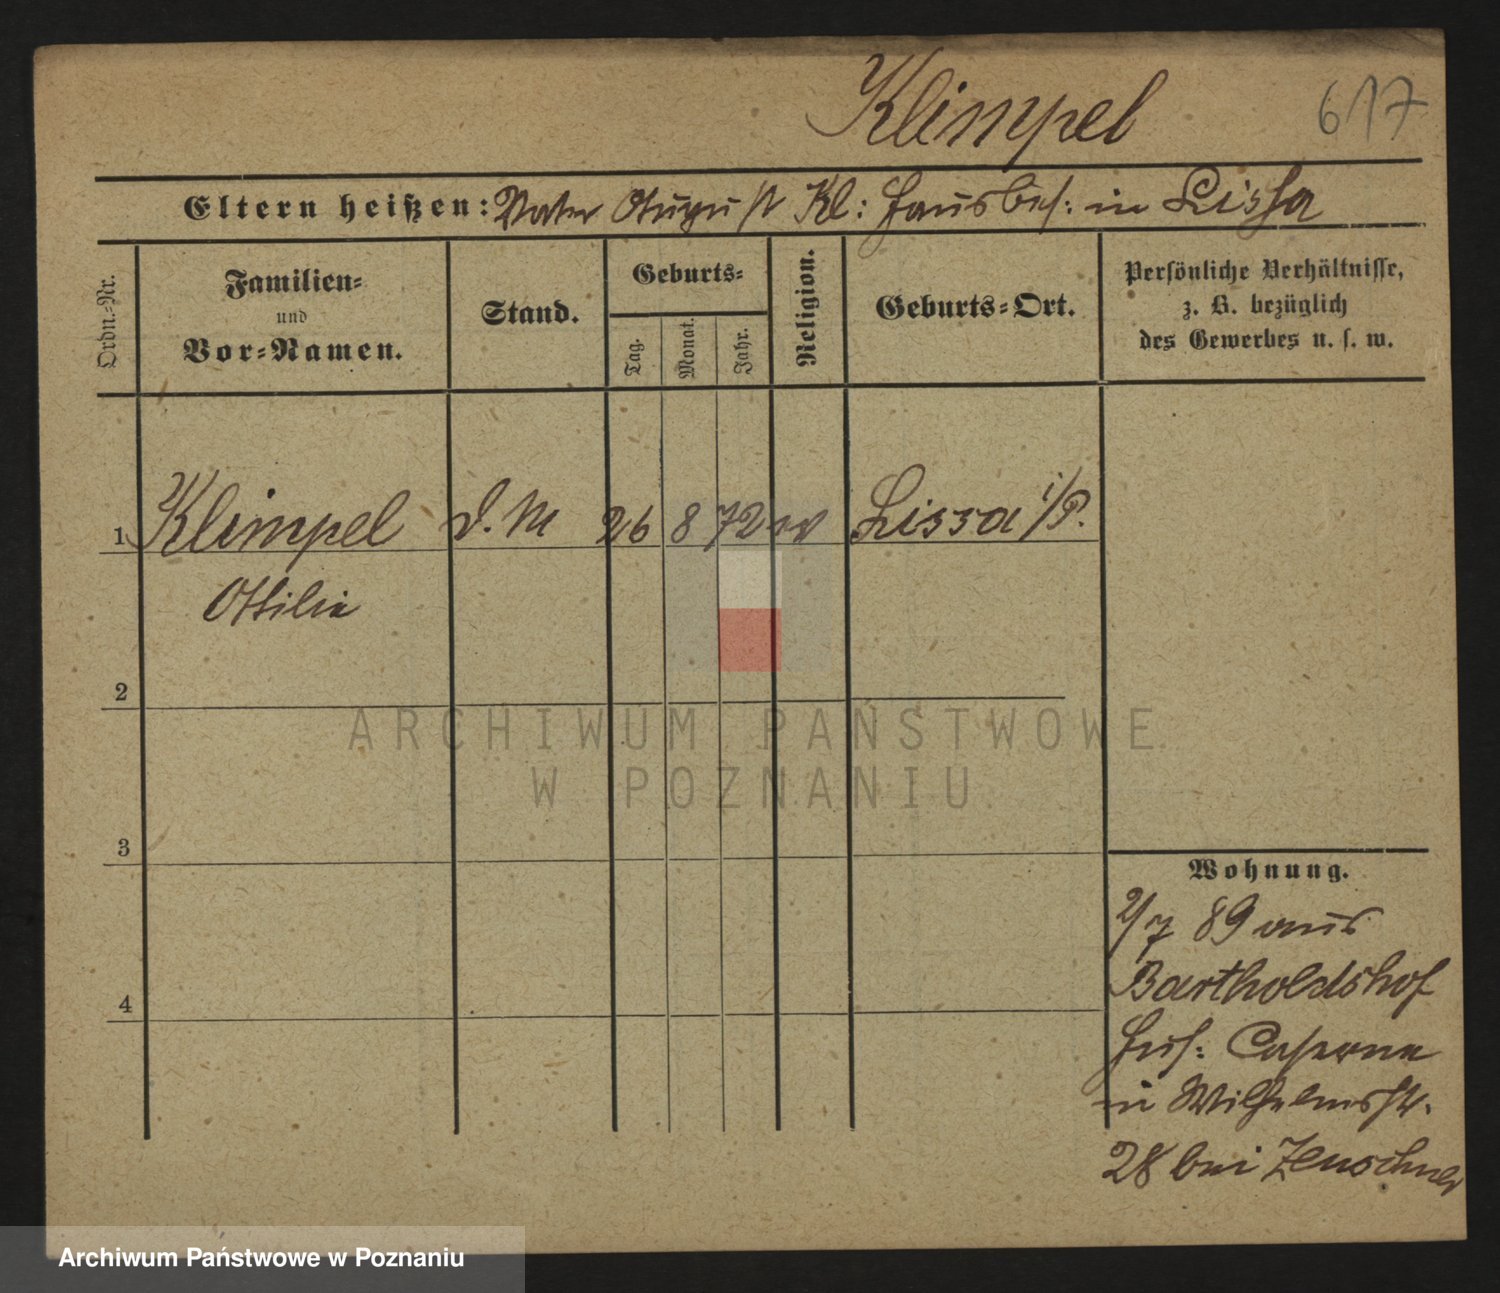 Klimpel
617
Eltern heißen: Vater August Kl: Hausbes: in Lissa
Ordn.-Nr.
Familien-
und
Vor-Namen.
Stand.
Geburts-
Tag.
Monat.
Jahr.
Religion.
Geburts-Ort.
Persönliche Verhältnisse,
z. B. bezüglich
des Gewerbes u. s. w.
1 Klimpel d. M 26 8 72 ev Lissa i/P.
Ottilie
2
3
4
Wohnung.
2/7 89 aus
Bartholdshof
Hus: Caserne
in Wilhelmstr.
28 bei Zenschner
ARCHIWUM PAŃSTWOWE
W POZNANIU
Archiwum Państwowe w Poznaniu